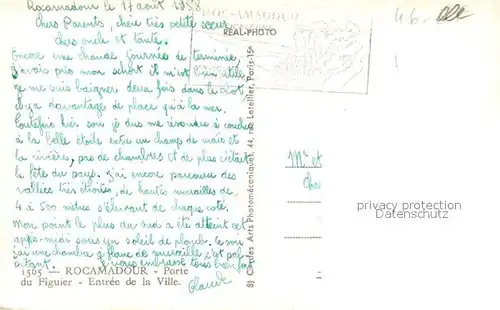 Rocamadour le 17 août 1958
Chers Parents, chère très petite soeur
chers oncle et tante.
Encore une chaude journée de terminée
j'avais pris mon short il m'est bien utile
je me suis baigner deux fois dans le Lot
il y a davantage de place qu'à la mer.
Toutefois hier soir je dus me résoudre à coucher
à la belle étoile entre un champ de maïs et
la rivière, pas de chambres et de plus c'était
la fête du pays. J'ai encore parcouru des
vallées très étroites, de hautes murailles de
4 à 500 mètres s'élevant de chaque coté.
Mon point le plus au sud a été atteint cet
après-midi sous un soleil de plomb. Ce soir
j'ai une chambre à flanc de muraille c'est pas
autant. Je vous embrasse tous bien fort
Claude
1565 — ROCAMADOUR - Porte
du Figuier - Entrée de la Ville.
ROCAMADOUR
REAL-PHOTO
Arts Photomécaniques, 44, rue Letellier, Paris-15e
46
Mr et
delcampe.net
protection watermark